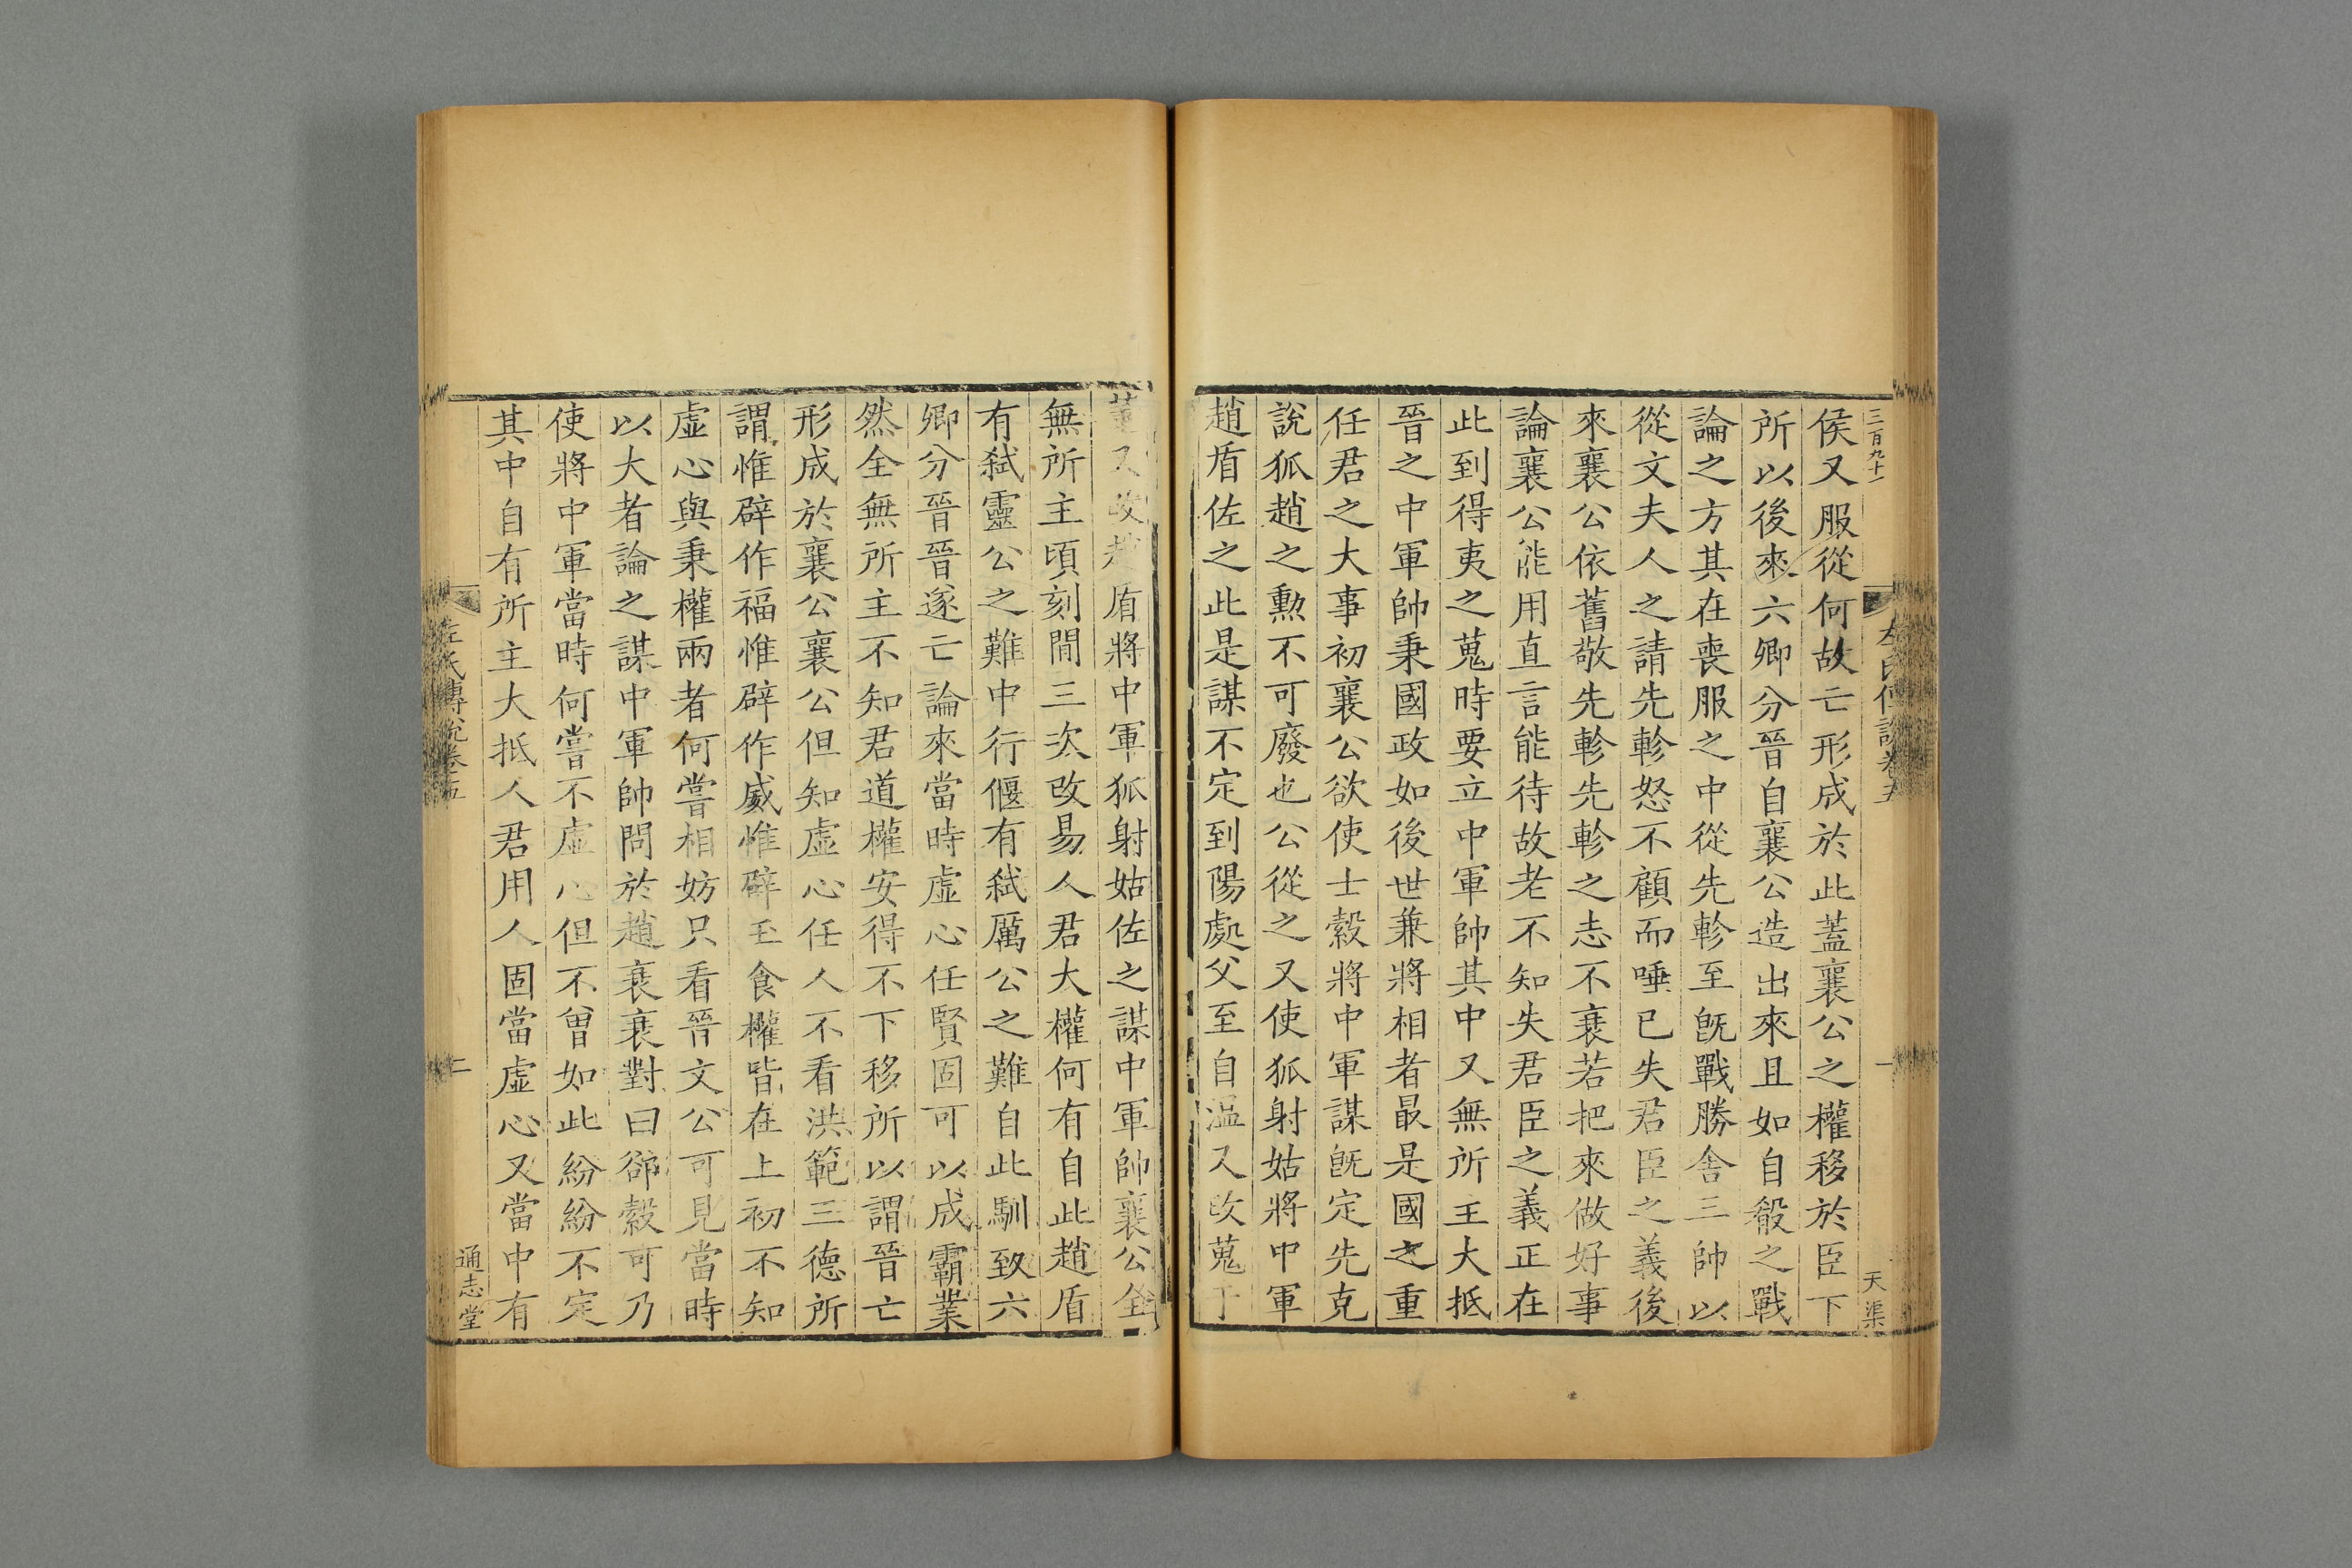 三百九十一
左氏傳說卷五
一
天渠
侯又服從何故亡形成於此蓋襄公之權移於臣下
所以後來六卿分晉自襄公造出來且如自殽之戰
論之方其在喪服之中從先軫至旣戰勝舍三帥以
從文夫人之請先軫怒不顧而唾已失君臣之義後
來襄公依舊敬先軫先軫之志不衰若把來做好事
論襄公能用直言能待故老不知失君臣之義正在
此到得夷之蒐時要立中軍帥其中又無所主大抵
晉之中軍帥秉國政如後世兼將相者最是國之重
任君之大事初襄公欲使士縠將中軍謀旣定先克
說狐趙之勲不可廢也公從之又使狐射姑將中軍
趙盾佐之此是謀不定到陽處父至自溫又改蒐于
董又改趙盾將中軍狐射姑佐之謀中軍帥襄公全
無所主頃刻間三次改易人君大權何有自此趙盾
有弑靈公之難中行偃有弑厲公之難自此馴致六
卿分晉晉遂亡論來當時虛心任賢固可以成霸業
然全無所主不知君道權安得不下移所以謂晉亡
形成於襄公襄公但知虛心任人不看洪範三德所
謂惟辟作福惟辟作威惟辟玉食權皆在上初不知
虛心與秉權兩者何嘗相妨只看晉文公可見當時
以大者論之謀中軍帥問於趙衰衰對曰郤縠可乃
使將中軍當時何嘗不虛心但不曾如此紛紛不定
其中自有所主大抵人君用人固當虛心又當中有
左氏傳說卷五
二
通志堂